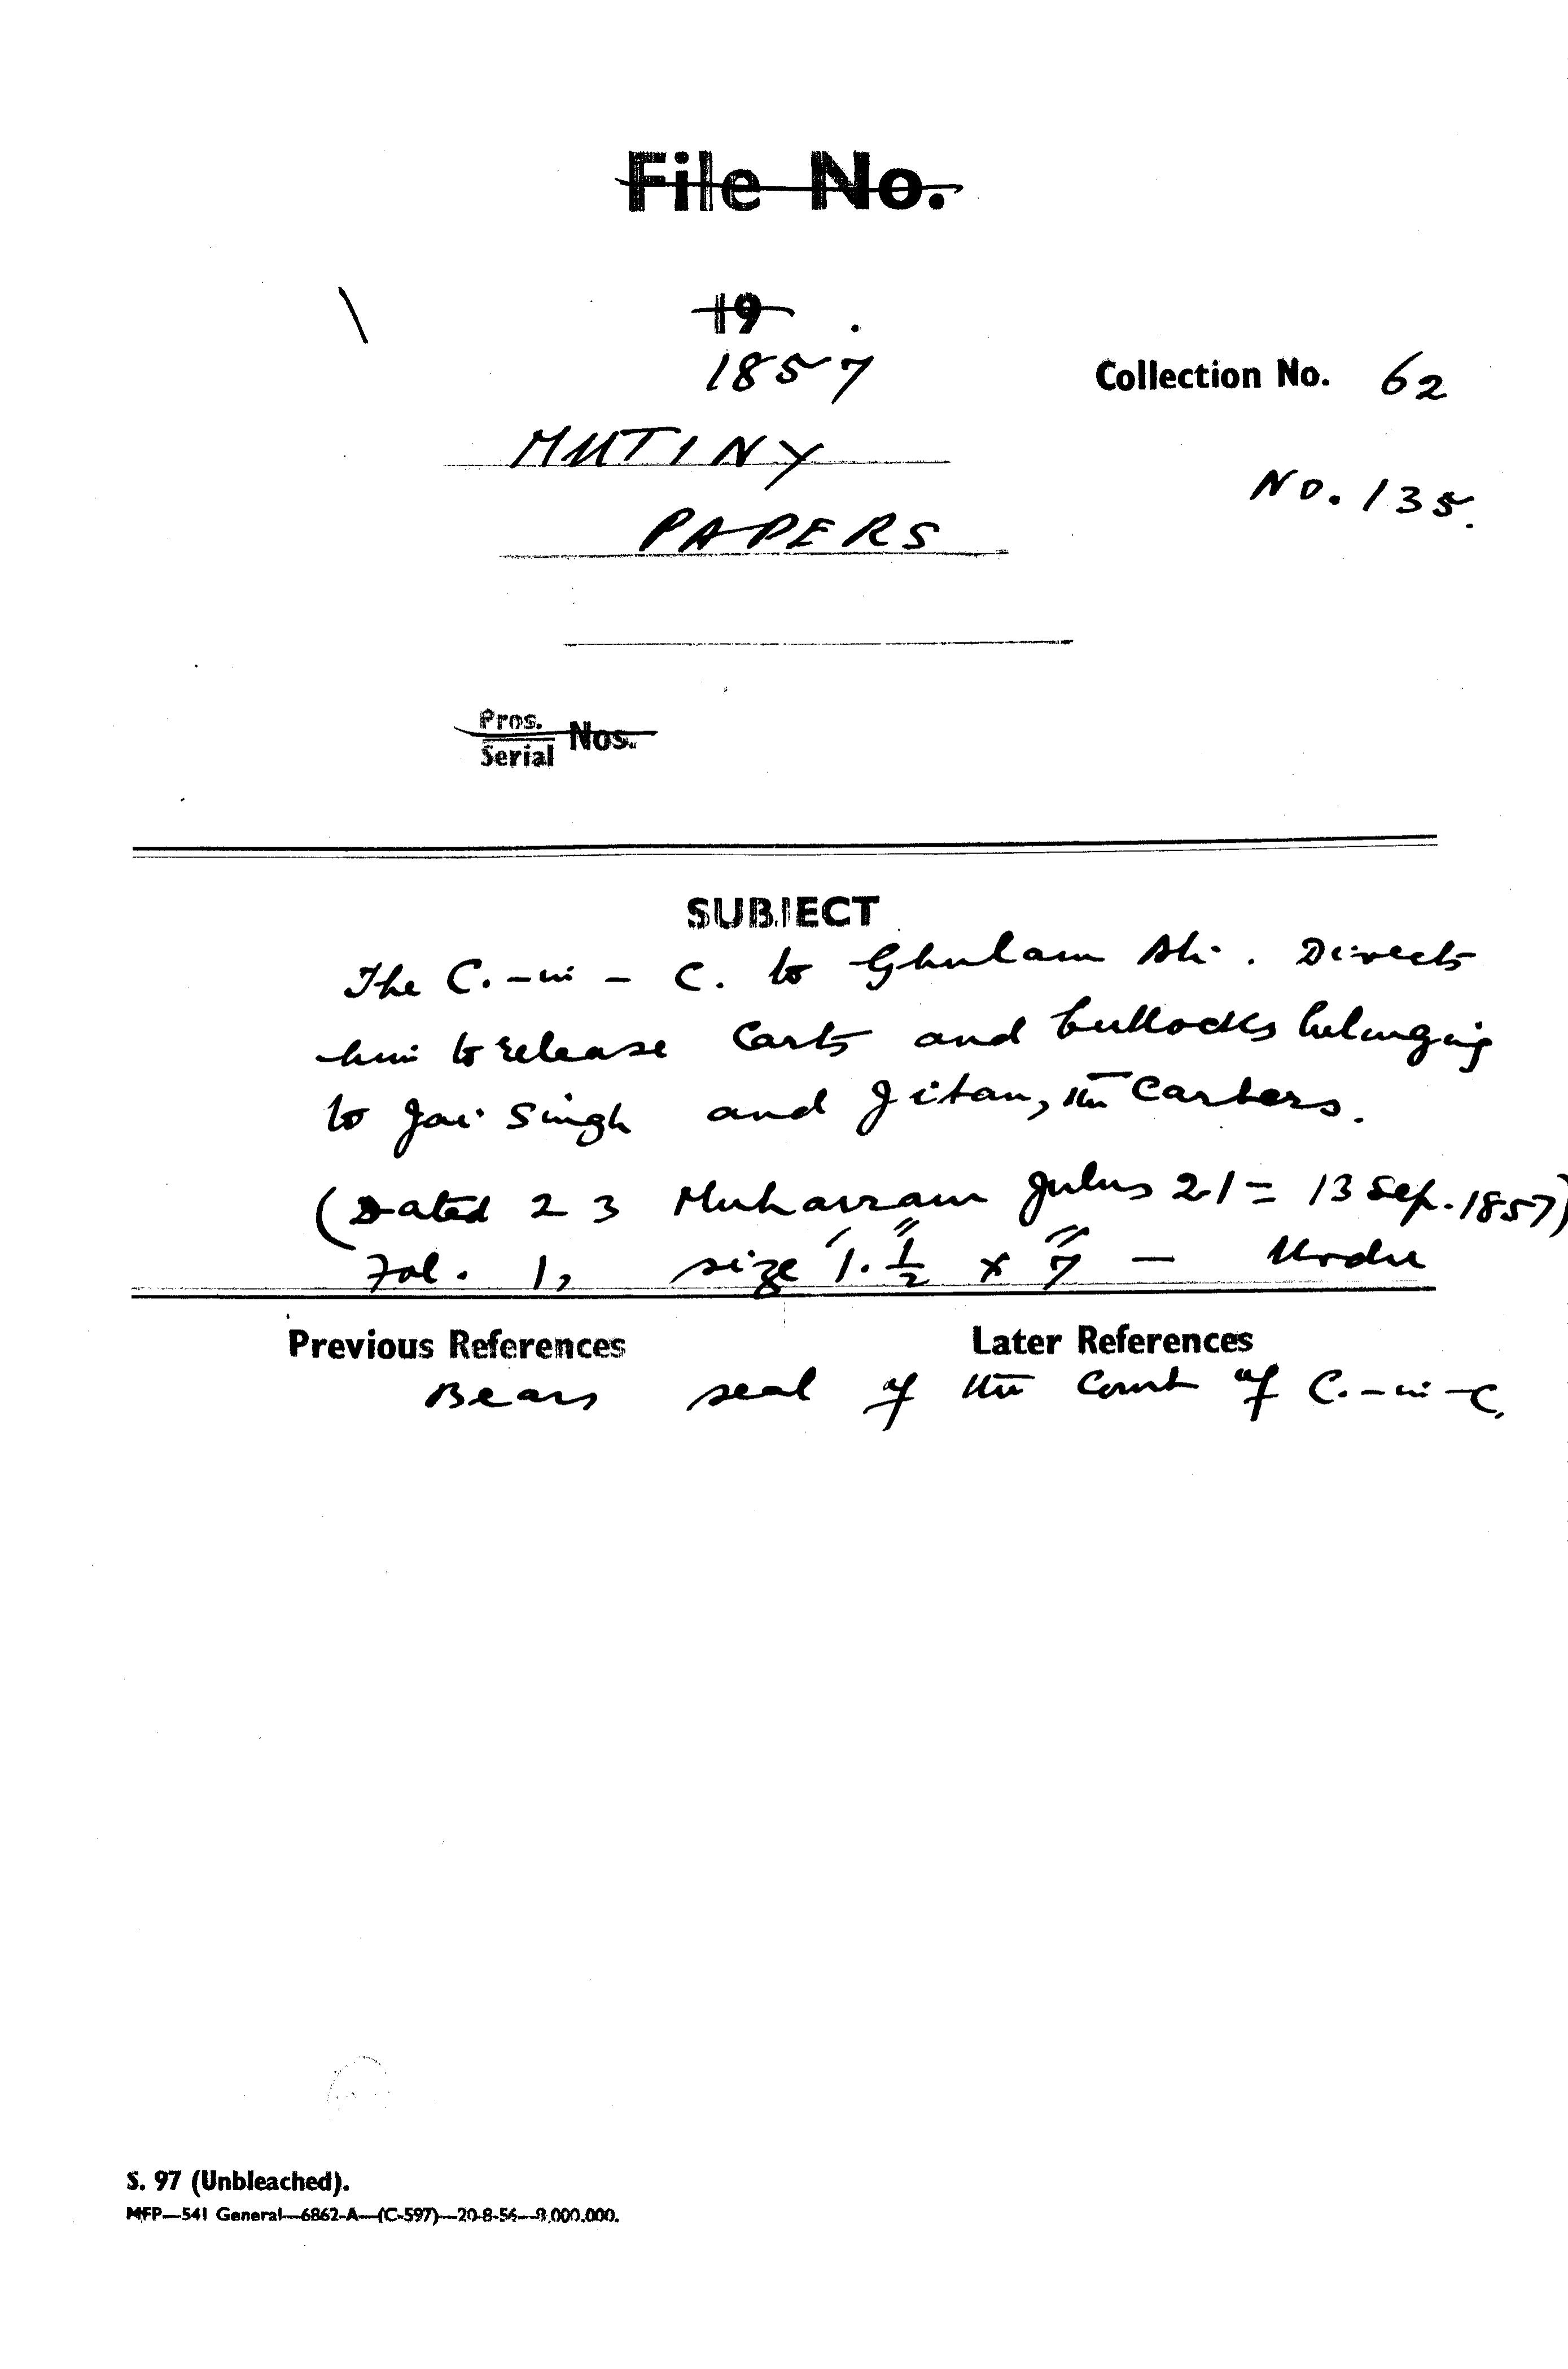 File No.
19
1857
Collection No. 62
MUTINY
No. 135.
PAPERS
Pros.
Serial Nos.
SUBJECT
The C.-in-C. to Ghulam Ali. Directs
him to release carts and bullocks belonging
to Jai Singh and Jitan, the Carters.
(Dated 23 Muharram Julus 21 = 13 Sep. 1857)
Fol. 1, size 1'.½" x 7" — Urdu
Previous References
Later References
Bears seal of the Court of C.-in-C.
S. 97 (Unbleached).
MFP—541 General—6862-A—(C-597)—20-8-56—000.000.